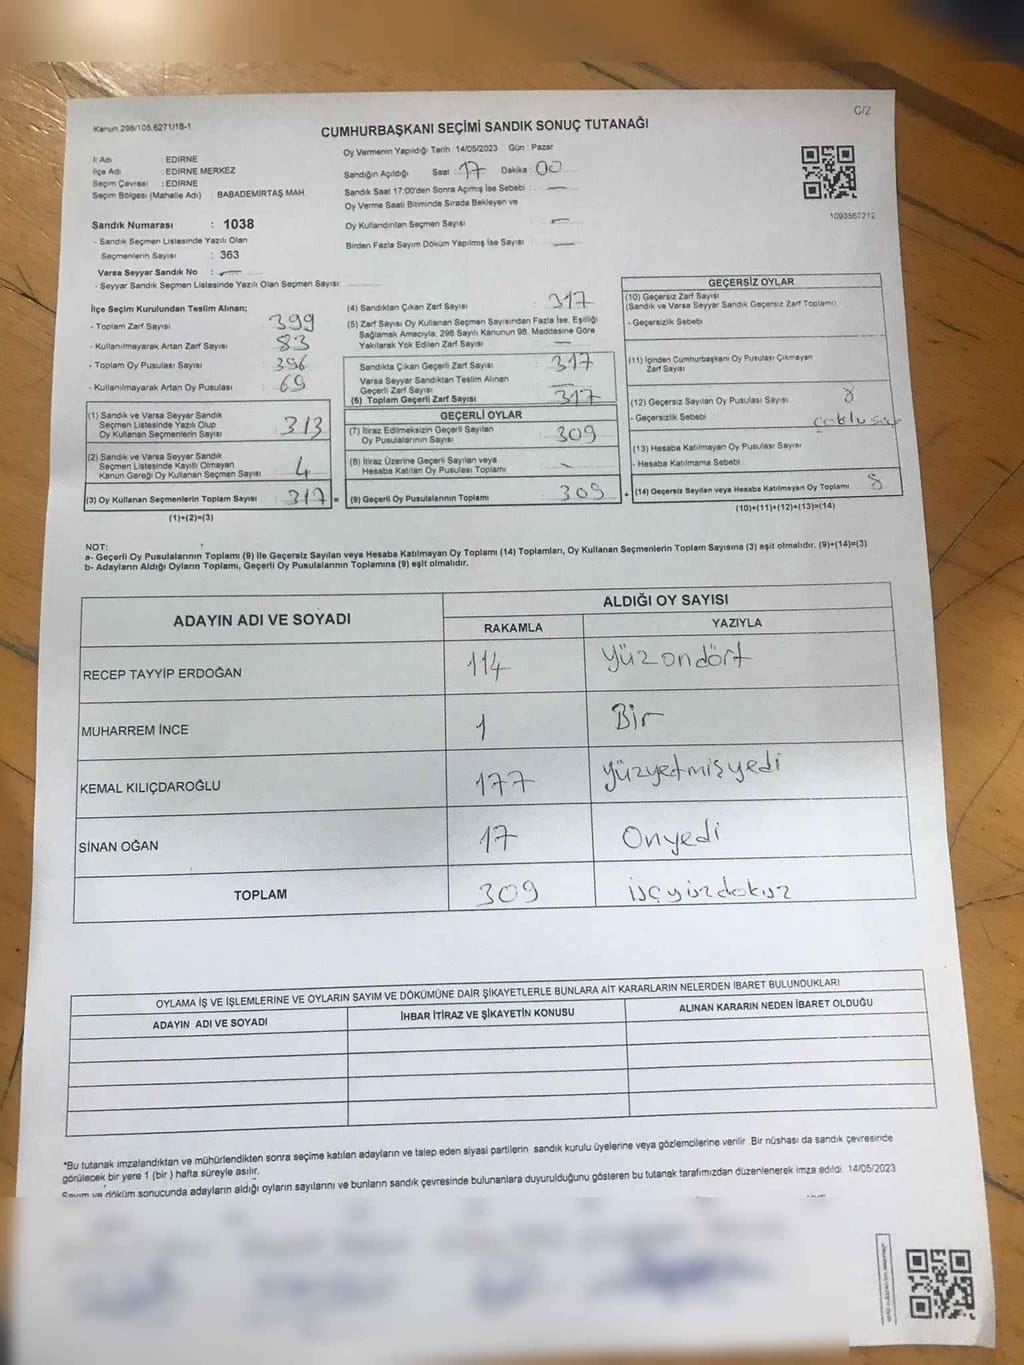 Kanun 298/105,6271/18-1
C/2
CUMHURBAŞKANI SEÇİMİ SANDIK SONUÇ TUTANAĞI
İl Adı : EDİRNE
İlçe Adı : EDİRNE MERKEZ
Seçim Çevresi : EDİRNE
Seçim Bölgesi (Mahalle Adı) : BABADEMİRTAŞ MAH.
Sandık Numarası : 1038
- Sandık Seçmen Listesinde Yazılı Olan
Seçmenlerin Sayısı : 363
Varsa Seyyar Sandık No : —
- Seyyar Sandık Seçmen Listesinde Yazılı Olan Seçmen Sayısı:
Oy Vermenin Yapıldığı Tarih : 14/05/2023 Gün : Pazar
Sandığın Açıldığı Saat : 17 Dakika : 00
Sandık Saat 17:00'den Sonra Açımış İse Sebebi : —
Oy Verme Saati Bitiminde Sırada Bekleyen ve
Oy Kullandırılan Seçmen Sayısı : —
Birden Fazla Sayım Döküm Yapılmış İse Sayısı : —
1093567212
İlçe Seçim Kurulundan Teslim Alınan;
- Toplam Zarf Sayısı : 399
- Kullanılmayarak Artan Zarf Sayısı : 83
- Toplam Oy Pusulası Sayısı : 396
- Kullanılmayarak Artan Oy Pusulası : 69
(1) Sandık ve Varsa Seyyar Sandık
Seçmen Listesinde Yazılı Olup
Oy Kullanan Seçmenlerin Sayısı : 313
(2) Sandık ve Varsa Seyyar Sandık
Seçmen Listesinde Kayıtlı Olmayan
Kanun Gereği Oy Kullanan Seçmen Sayısı : 4
(3) Oy Kullanan Seçmenlerin Toplam Sayısı : 317 =
(1)+(2)=(3)
(4) Sandıktan Çıkan Zarf Sayısı : 317
(5) Zarf Sayısı Oy Kullanan Seçmen Sayısından Fazla İse, Eşitliği
Sağlamak Amacıyla, 298 Sayılı Kanunun 98. Maddesine Göre
Yakılarak Yok Edilen Zarf Sayısı : —
Sandıkta Çıkan Geçerli Zarf Sayısı : 317
Varsa Seyyar Sandıktan Teslim Alınan
Geçerli Zarf Sayısı : —
(6) Toplam Geçerli Zarf Sayısı : 317
GEÇERLİ OYLAR
(7) İtiraz Edilmeksizin Geçerli Sayılan
Oy Pusulalarının Sayısı : 309
(8) İtiraz Üzerine Geçerli Sayılan veya
Hesaba Katılan Oy Pusulası Toplamı : -
(9) Geçerli Oy Pusulalarının Toplamı : 309 +
GEÇERSİZ OYLAR
(10) Geçersiz Zarf Sayısı
(Sandık ve Varsa Seyyar Sandık Geçersiz Zarf Toplamı) :
- Geçersizlik Sebebi :
(11) İçinden Cumhurbaşkanı Oy Pusulası Çıkmayan
Zarf Sayısı :
(12) Geçersiz Sayılan Oy Pusulası Sayısı : 8
- Geçersizlik Sebebi :
(13) Hesaba Katılmayan Oy Pusulası Sayısı :
- Hesaba Katılmama Sebebi :
(14) Geçersiz Sayılan veya Hesaba Katılmayan Oy Toplamı : 8
(10)+(11)+(12)+(13)=(14)
NOT:
a- Geçerli Oy Pusulalarının Toplamı (9) ile Geçersiz Sayılan veya Hesaba Katılmayan Oy Toplamı (14) Toplamları, Oy Kullanan Seçmenlerin Toplam Sayısına (3) eşit olmalıdır. (9)+(14)=(3)
b- Adayların Aldığı Oyların Toplamı, Geçerli Oy Pusulalarının Toplamına (9) eşit olmalıdır.
ADAYIN ADI VE SOYADI
ALDIĞI OY SAYISI
RAKAMLA YAZIYLA
RECEP TAYYİP ERDOĞAN 114 yüzondört
MUHARREM İNCE 1 Bir
KEMAL KILIÇDAROĞLU 177 yüzyetmişyedi
SİNAN OĞAN 17 Onyedi
TOPLAM 309 üçyüzdokuz
OYLAMA İŞ VE İŞLEMLERİNE VE OYLARIN SAYIM VE DÖKÜMÜNE DAİR ŞİKAYETLERLE BUNLARA AİT KARARLARIN NELERDEN İBARET BULUNDUKLARI
ADAYIN ADI VE SOYADI İHBAR İTİRAZ VE ŞİKAYETİN KONUSU ALINAN KARARIN NEDEN İBARET OLDUĞU
*Bu tutanak imzalandıktan ve mühürlendikten sonra seçime katılan adayların ve talep eden siyasi partilerin sandık kurulu üyelerine veya gözlemcilerine verilir. Bir nüshası da sandık çevresinde
görülecek bir yere 1 (bir ) hafta süreyle asılır.
Sayım ve döküm sonucunda adayların aldığı oyların sayılarını ve bunların sandık çevresinde bulunanlara duyurulduğunu gösteren bu tutanak tarafımızdan düzenlenerek imza edildi. 14/05/2023